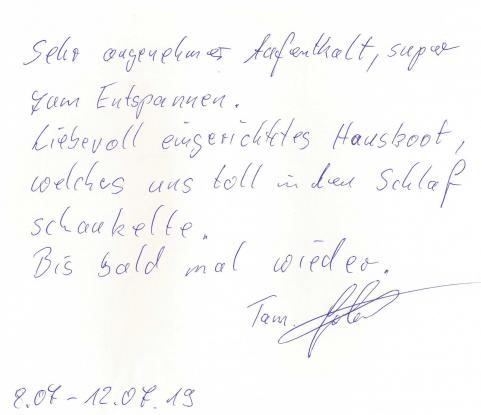 Sehr angenehmer Aufenthalt, super
zum Entspannen.
Liebevoll eingerichtetes Hausboot,
welches uns toll in den Schlaf
schaukelte.
Bis bald mal wieder.
Fam.
8.07 - 12.07.19